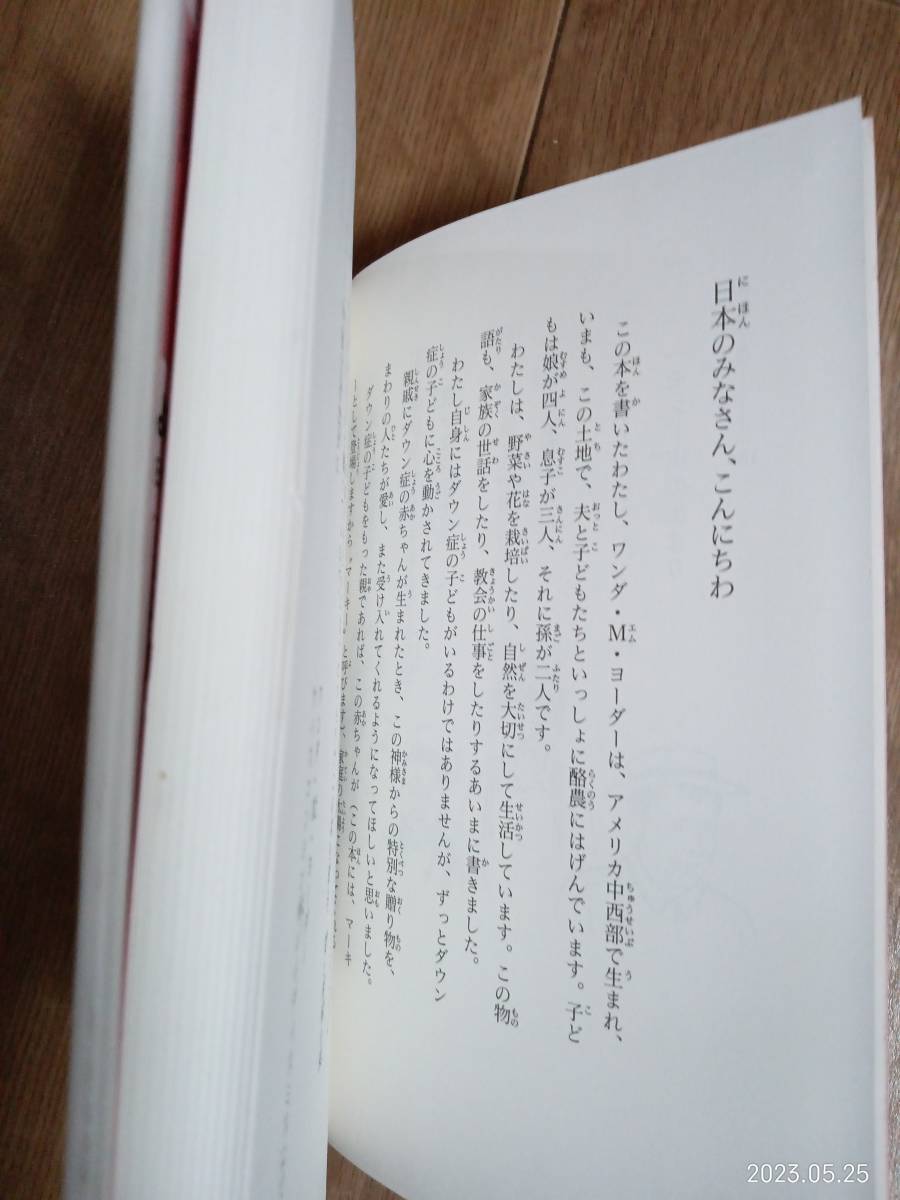 日本のみなさん、こんにちわ
この本を書いたわたし、ワンダ・M・ヨーダーは、アメリカ中西部で生まれ、
いまも、この土地で、夫と子どもたちといっしょに酪農にはげんでいます。子ど
もは娘が四人、息子が三人、それに孫が二人です。
わたしは、野菜や花を栽培したり、自然を大切にして生活しています。この物
語も、家族の世話をしたり、教会の仕事をしたりするあいまに書きました。
わたし自身にはダウン症の子どもがいるわけではありませんが、ずっとダウン
症の子どもに心を動かされてきました。
親戚にダウン症の赤ちゃんが生まれたとき、この神様からの特別な贈り物を、
まわりの人たちが愛し、また受け入れてくれるようになってほしいと思いました。
ダウン症の子どもをもった親であれば、この赤ちゃんが（この本には、マーキ
ーとして登場しますから「マーキー」と呼びます）、家庭の
2023.05.25